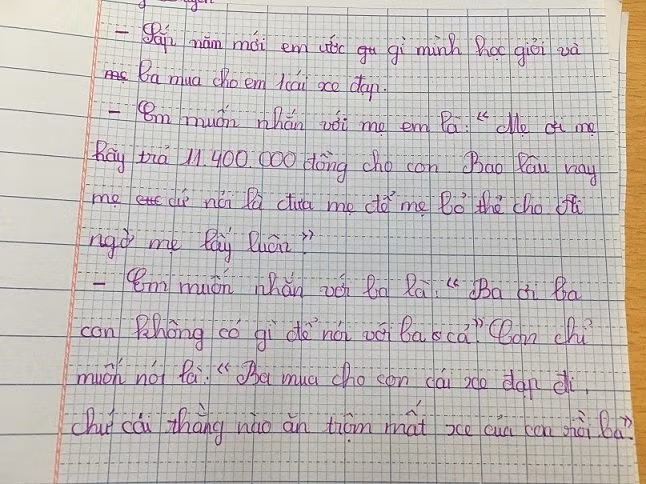 - Sắp năm mới em ước gu gì mình học giỏi và
mẹ ba mua cho em 1 cái xe đạp.
- Em muốn nhắn với mẹ em là: "Mẹ ơi mẹ
hãy trả 11.400.000 đồng cho con. Bao lâu nay
mẹ cứ nói là đưa mẹ để mẹ bỏ thẻ cho ai
ngờ mẹ lấy luôn".
- Em muốn nhắn với ba là: "Ba ơi ba
con không có gì để nói với ba cả" Con chỉ
muốn nói là: "Ba mua cho con cái xe đạp đi,
chứ cái thằng nào ăn trộm mất xe của con rồi ba".